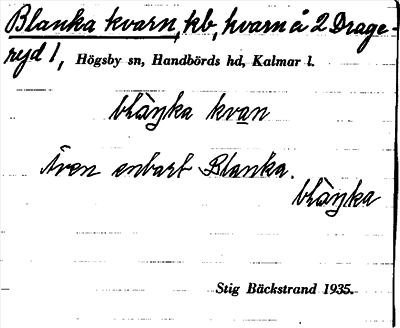 Blanka kvarn, kb, kvarn å 2 Drage-
ryd 1, Högsby sn, Handbörds hd, Kalmar l.
blàŋka kva̲n
Även enbart Blanka.
blàŋka
Stig Bäckstrand 1935.